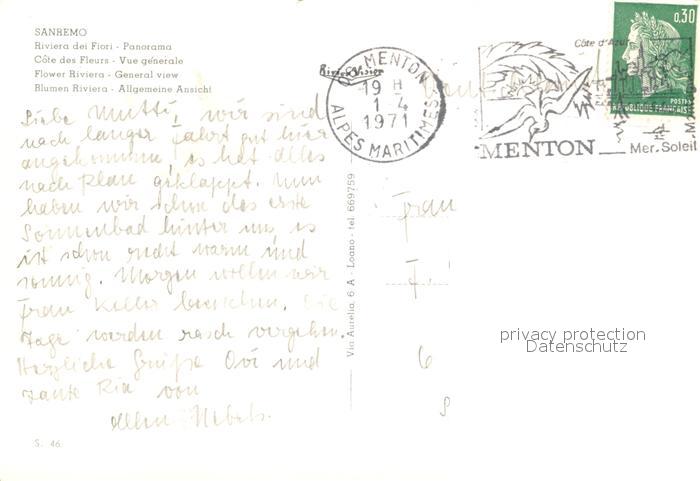 SANREMO
Riviera dei Fiori - Panorama
Côte des Fleurs - Vue génerale
Flower Riviera - General view
Blumen Riviera - Allgemeine Ansicht
Liebe Mutti, wir sind
nach langer Fahrt gut hier
angekommen, es hat alles
nach Plan geklappt. Nun
haben wir schon das erste
Sonnenbad hinter uns, es
ist schon recht warm und
sonnig. Morgen wollen wir
Frau Keller besuchen. Die
Tage werden rasch vergehen.
Herzliche Grüße und
Tante Ria von
S. 46.
Via Aurelia, 6 A - Loano - tel. 669759
MENTON
19 H
1 4
1971
ALPES MARITIMES
Côte d'Azur
MENTON
Mer. Soleil
0,30
POSTES
REPUBLIQUE FRANÇAISE
Frau
F
6
privacy protection
Datenschutz